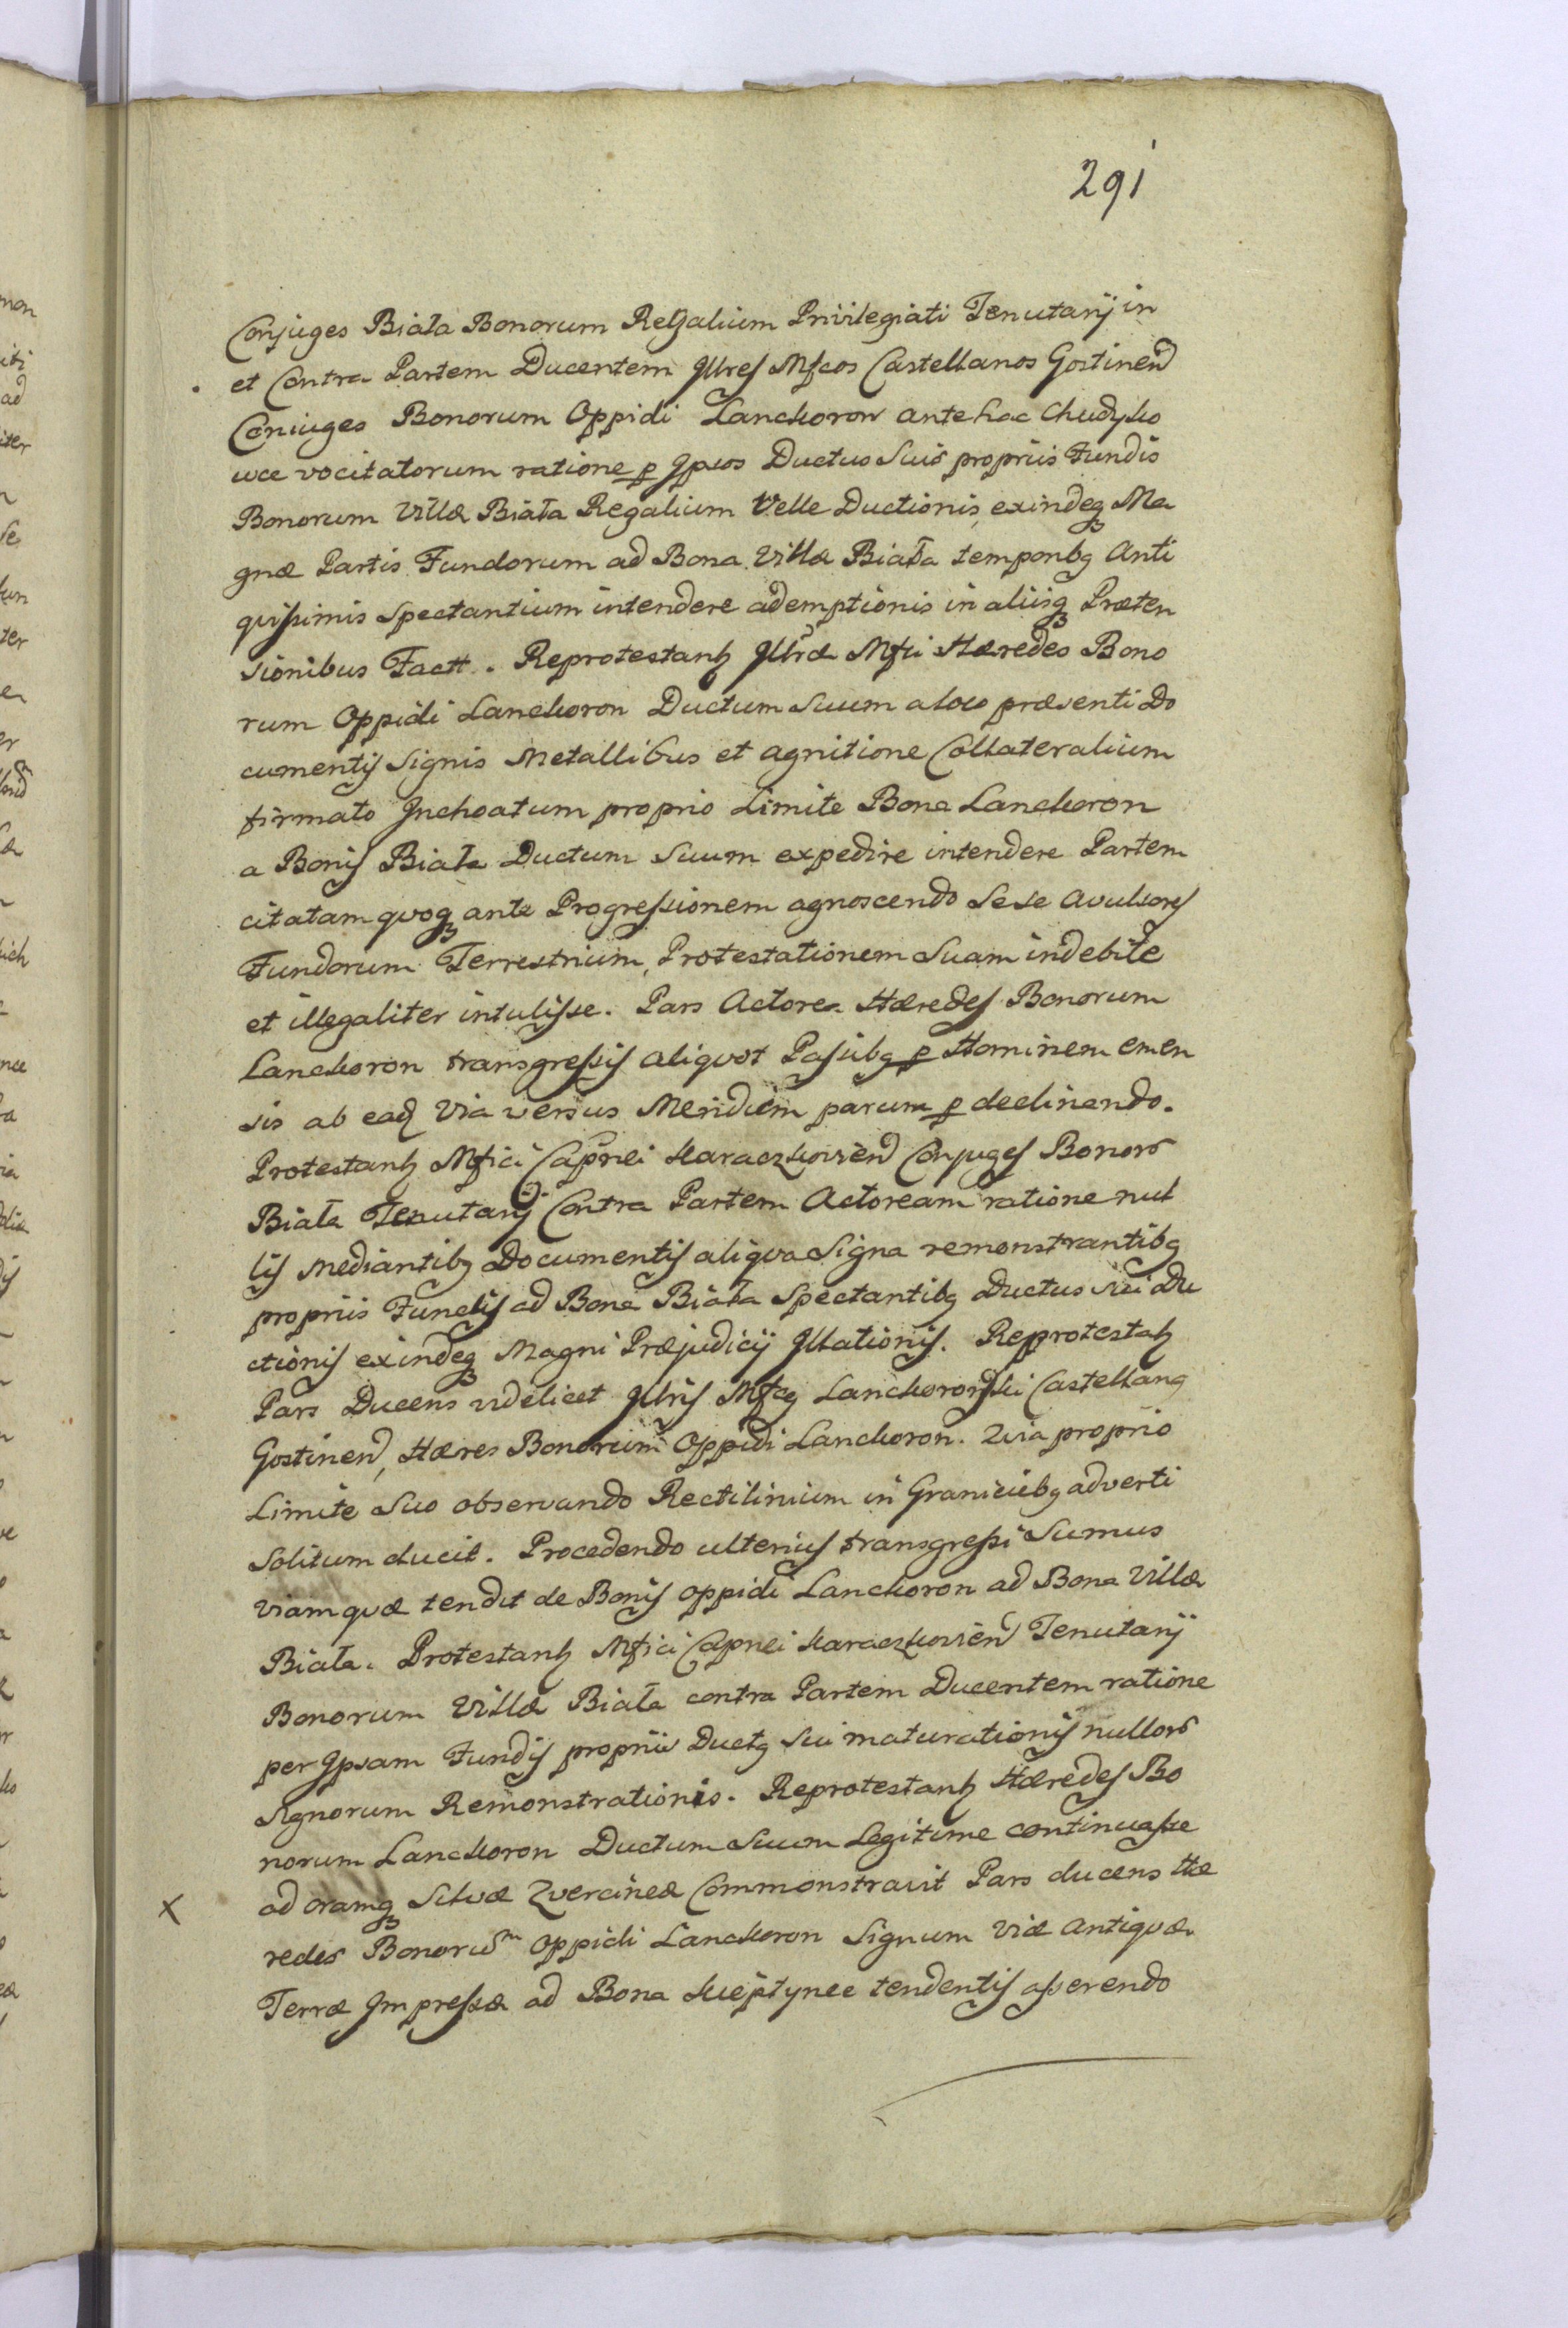 291
Conjuges Biała Bonorum Regalium Privilegiati Tenutarij in
et Contra Partem Ducentem Illres Mfcos Castellanos Gostinen
Coniuges Bonorum Oppidi Lanckoron antehac Chudyko
wce vocitatorum ratione p Ipsos Ductus Suis propriis Fundis
Bonorum Villæ Biała Regalium Velle Ductionis, exindeq Ma
gnæ Partis Fundorum ad Bona Villæ Biała temporibq Anti
quissimis Spectantium intendere ademptionis in aliisq Præten
sionibus Factt. Reprotestantq Illræ Mfci Hæredes Bono
rum Oppidi Lanckoron Ductum Suum a loco præsenti Do
cumentis Signis Metallibus et agnitione Collateralium
firmato Inchoatum proprio Limite Bona Lanckoron
a Bonis Biała Ductum Suum expedire intendere Partem
citatam quoq ante Progressionem agnoscendo Sese Avulsores
Fundorum Terrestrium, Protestationem Suam indebite
et illegaliter intulisse. Pars Actorea Hæredes Bonorum
Lanckoron transgressis aliquot Passibq p Hominem emen
sis ab eadq Via versus Meridiem parum p declinendo.
Protestantq Mfici Capnei Karaczkowien Conjuges Bonor
Biała Tenutarij Contra Partem Actoream ratione nul
lis Mediantibq Documentis aliqva Signa remonstrantibq
propriis Fundis ad Bona Biała Spectantibq Ductus sui Du
ctionis exindeq Magni Præjudicij Illationis. Reprotestatq
Pars Ducens videlicet Illris Mfcq Lanckoroński Castellanq
Gostinen, Hæres Bonorum Oppidi Lanckoron. Quia proprio
Limite Suo observando Rectilinium in Graniciebq adverti
Solitum ducit. Procedendo ulterius transgressi Sumus
Viam qvæ tendit de Bonis Oppidi Lanckoron ad Bona Villæ
Biała. Protestantq Mfici Capnei Karaczkowien Tenutarij
Bonorum Villæ Biała contra Partem Ducentem ratione
per Ipsam Fundis propriis Ductq Sui maturationis nullor
Signorum Remonstrationis. Reprotestantq Hæredes Bo
norum Lanckoron Ductum Suum Legitime continuasse
x ad oramq Silvæ Qvercineæ Commonstravit Pars ducens Hæ
redes Bonorum Oppidi Lanckoron Signum Viæ Antiqvæ
Terræ Impressæ ad Bona tendentis asserendo